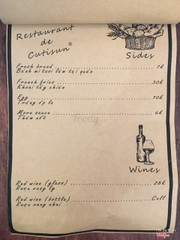 Restaurant
de
Cutisun®
Sides
French bread 7k
Bánh mì
French fries 30k
Khoai tây chiên
Egg 10k
Trứng ốp la
More sauce 6k
Thêm sốt
Wines
Red wine (glass)
Rượu vang ly
Red wine (bottle) Call
Rượu vang chai